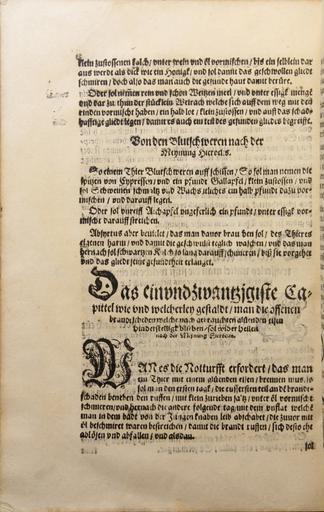 klein zustossenen kalch / unter wein und öl vermischen / bis ein selblein dar
aus werde als dick wie ein Honigk / und sol damit das geschwollen gliedt
schmiren / doch also das man auch die gesunde haut damit berüre.
Oder sol nemen rein und schön Weitzen meel / und unter essigk menge
und dar zu thun der stücklein Weirach welche sich auff dem weg mit den
rinden vermischt haben / ein halb lot / klein zustossen / und auff das schad-
hafftige gliedt legen / damit es auch ein teil des gesunden gliedes begreiffe.
Von den Blutschweren nach der
Meynung Hieroclis.
So einem Thier Blutschweren auff schiessen / So sol man nemen die
spitzen von Cypressen / und ein pfundt Gallapfel / klein zustossen / und
Schweinen schmaltz und Wachs itzliches ein halb pfundt dazu ver-
mischen / und darauff legen.
Oder sol unreiff Aichapfel ungeferlich ein pfundt / unter essigk ver-
mischt darauff streichen.
Absyrtus aber bevilet / das man dauor brauchen sol / des Thieres
eigenen harm / und damit die geschwulst teglich waschen / und das man
hernach sol schwartzen lang darauff schmiren / biß sie vorgehet
und das gliedt seine gesundtheit erlanget.
Das einvndzwantzigiste Ca-
pittel wie und welcherley gestaldt / man die offenen
brandtscheden welche nach gebrauchten glüenden eisen
hinderstelligk bliben / sol wider heilen
nach der Meynung Hieroclis.
WAN es die Notturfft erfordert / das man
ein Thier mit einem glüenden eisen / brennen mus. so
sol man am ersten tage / die eussersten teil an de brandt-
schaden beneben den rufften / mit klein zuriben saltz / unter öl vermischt
schmiren / und hernach die andere folgende tag mit dem unflat welchē
man in dem badt von der Jungen knaben leib abschabet / die zuuor mit
öl beschmiret waren bestreichen / damit die brandt rufften / sich desto ehe
ablösen und abfallen / und alsdan.
sol